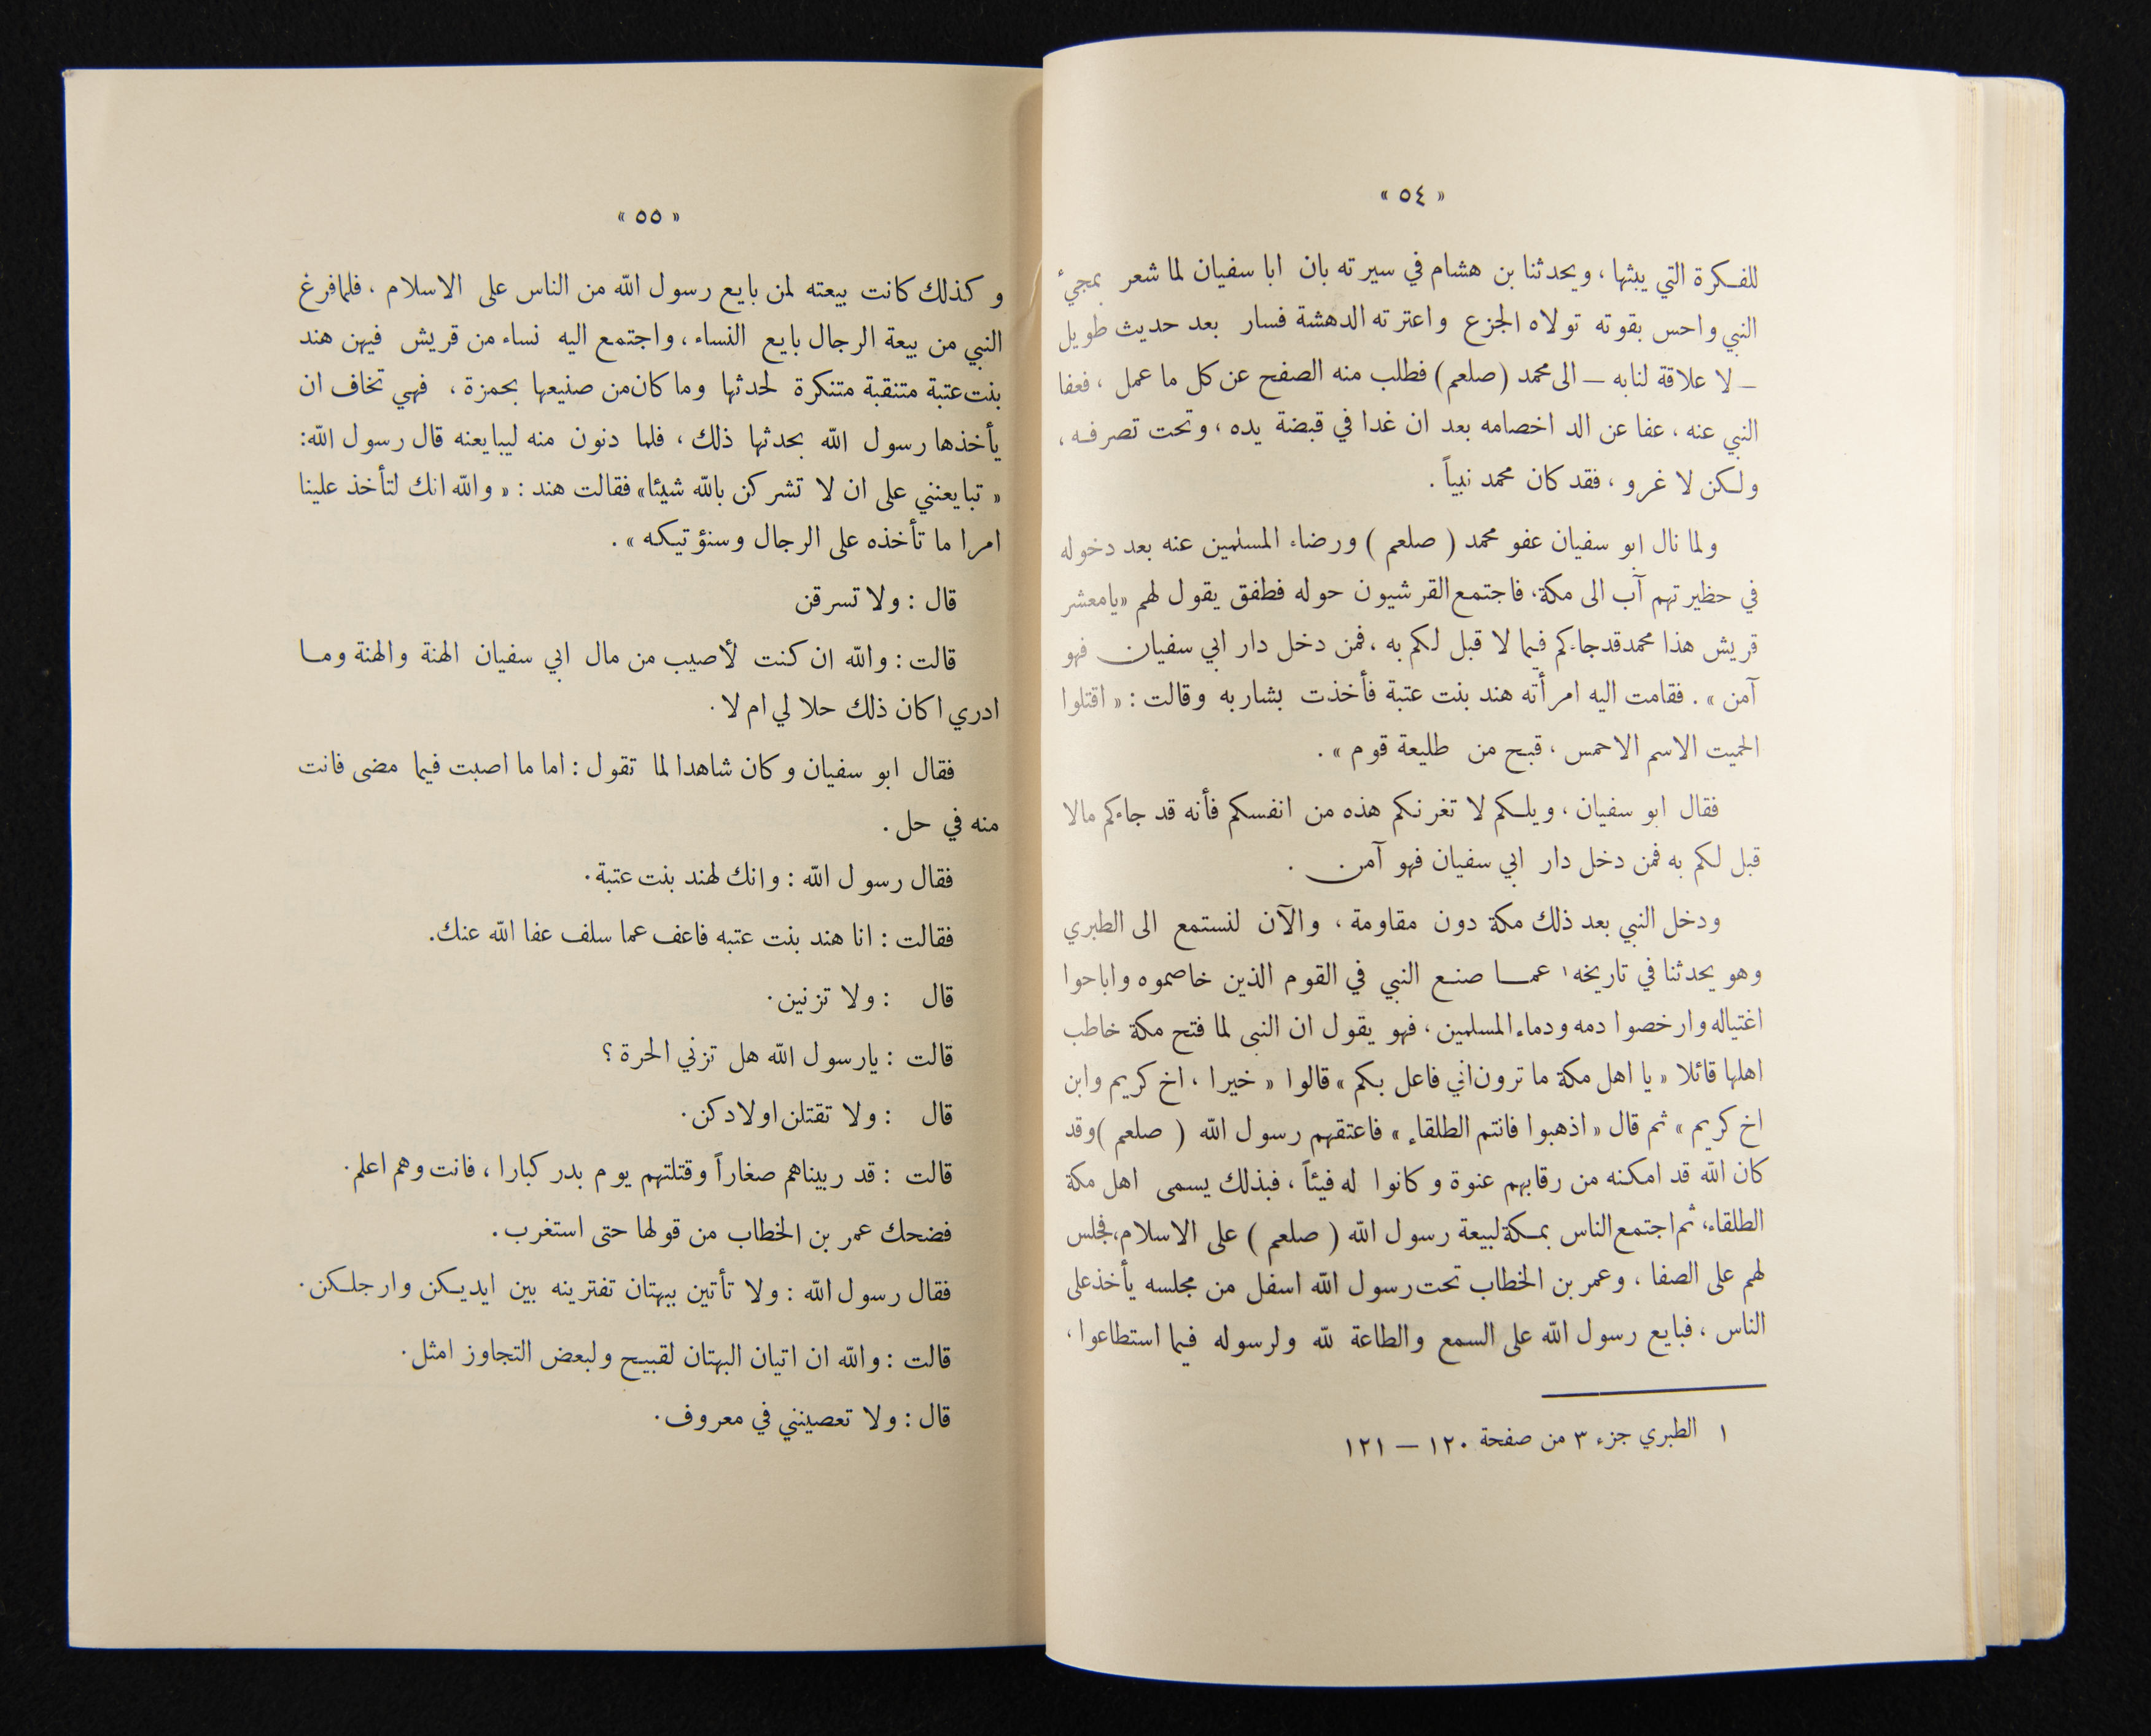 « ٥٤ »
للفكرة التي يبثها ، ويحدثنا بن هشام في سيرته بان ابا سفيان لما شعر بمجيء
النبي واحس بقوته تولاه الجزع واعترته الدهشة فسار بعد حديث طويل
– لا علاقة لنابه – الى محمد (صلعم) فطلب منه الصفح عن كل ما عمل ، فعفا
النبي عنه ، عفا عن الد اخصامه بعد ان غدا في قبضة يده ، وتحت تصرفه ،
ولكن لا غرو ، فقد كان محمد نبياً .
ولما نال ابو سفيان عفو محمد ( صلعم ) ورضاء المسلمين عنه بعد دخوله
في حظيرتهم آب الى مكة، فاجتمع القرشيون حوله فطفق يقول لهم «يامعشر
قريش هذا محمد قد جاءكم فيما لا قبل لكم به ، فمن دخل دار ابي سفيان فهو
آمن » . فقامت اليه امرأته هند بنت عتبة فأخذت بشاربه وقالت : « اقتلوا
الحميت الاسم الاحمس ، قبح من طليعة قوم » .
فقال ابو سفيان ، ويلكم لا تغرنكم هذه من انفسكم فأنه قد جاءكم مالا
قبل لكم به فمن دخل دار ابي سفيان فهو آمن .
ودخل النبي بعد ذلك مكة دون مقاومة ، والآن لنستمع الى الطبري
وهو يحدثنا في تاريخه ١ عما صنع النبي في القوم الذين خاصموه واباحوا
اغتياله وارخصوا دمه ودماء المسلمين ، فهو يقول ان النبى لما فتح مكة خاطب
اهلها قائلا « يا اهل مكة ما ترون اني فاعل بكم » قالوا « خيرا ، اخ كريم وابن
اخ كريم » ثم قال « اذهبوا فانتم الطلقاء » فاعتقهم رسول الله ( صلعم )وقد
كان الله قد امكنه من رقابهم عنوة وكانوا له فيئاً ، فبذلك يسمى اهل مكة
الطلقاء، ثم اجتمع الناس بمكة لبيعة رسول الله ( صلعم ) على الاسلام، فجلس
لهم على الصفا ، وعمر بن الخطاب تحت رسول الله اسفل من مجلسه يأخذ على
الناس ، فبايع رسول الله على السمع والطاعة لله ولرسوله فيما استطاعوا ،
١ الطبري جزء ٣ من صفحة ١٢٠ – ١٢١
« ٥٥ »
وكذلك كانت بيعته لمن بايع رسول الله من الناس على الاسلام ، فلمافرغ
النبي من بيعة الرجال بايع النساء ، واجتمع اليه نساء من قريش فيهن هند
بنت عتبة متنقبة متنكرة لحدثها وما كان من صنيعها بحمزة ، فهي تخاف ان
يأخذها رسول الله بحدثها ذلك ، فلما دنون منه ليبايعنه قال رسول الله:
« تبايعنني على ان لا تشركن بالله شيئا» فقالت هند : « والله انك لتأخذ علينا
امرا ما تأخذه على الرجال وسنؤتيكه » .
قال : ولا تسرقن
قالت : والله ان كنت لأصيب من مال ابي سفيان الهنة والهنة وما
ادري اكان ذلك حلا لي ام لا .
فقال ابو سفيان وكان شاهدا لما تقول : اما ما اصبت فيما مضى فانت
منه في حل .
فقال رسول الله : وانك لهند بنت عتبة .
فقالت : انا هند بنت عتبه فاعف عما سلف عفا الله عنك.
قال : ولا تزنين .
قالت : يارسول الله هل تزني الحرة ؟
قال : ولا تقتلن اولادكن .
قالت : قد ربيناهم صغاراً وقتلتهم يوم بدر كبارا ، فانت وهم اعلم .
فضحك عمر بن الخطاب من قولها حتى استغرب .
فقال رسول الله : ولا تأتين ببهتان تفترينه بين ايديكن وارجلكن .
قالت : والله ان اتيان البهتان لقبيح ولبعض التجاوز امثل .
قال : ولا تعصينني في معروف .